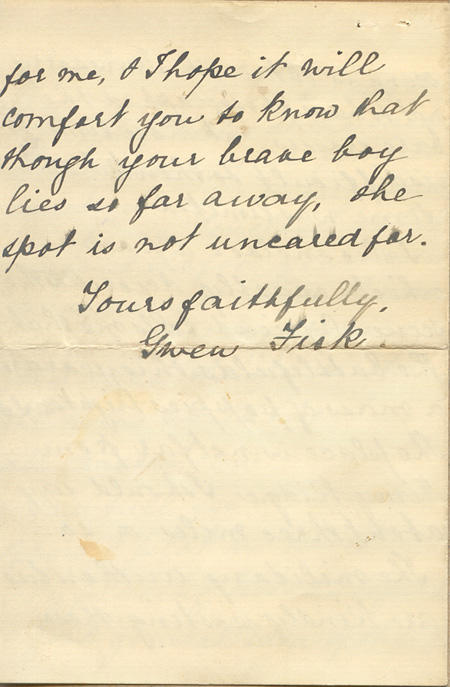 for me, & I hope it will
comfort you to know that
though your brave boy
lies so far away, the
spot is not uncared for.
Yours faithfully,
Gwen Fisk.